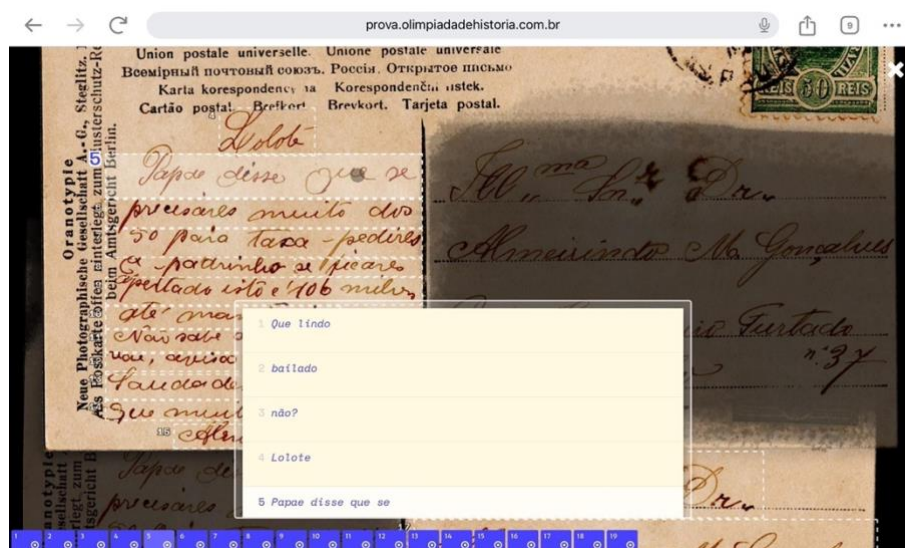 prova.olimpiadadehistoria.com.br
9
Union postale universelle. Unione postale universale
Всемірный почтовый союзъ. Россія. Открытое письмо
Karta korespondency Korespondenční lístek.
Cartão postal. Brefkort Brevkort. Tarjeta postal.
REIS 50 REIS
Oranotypie
Neue Photographische Gesellschaft A.-G., Steglitz,
Als Postkarte offen einterlegt, zum Musterschutz-Re
beim Amtsgericht Berlin.
5
Lolote
Papae disse que se
precisares muito dos
50 para taxa - pedires
a padrinho se ficares
apertado isto é 106 melres
até
Não sabe
vou, avisa
Saudade
Que
15
Ill ma Snr. Dr.
Almeirindo M. Gonçalves
Furtado
nº 37
1 Que lindo
2 bailado
3 não?
4 Lolote
5 Papae disse que se
Papae
precisares
Dr.
1 2 3 4 5 6 7 8 9 10 11 12 13 14 15 16 17 18 19